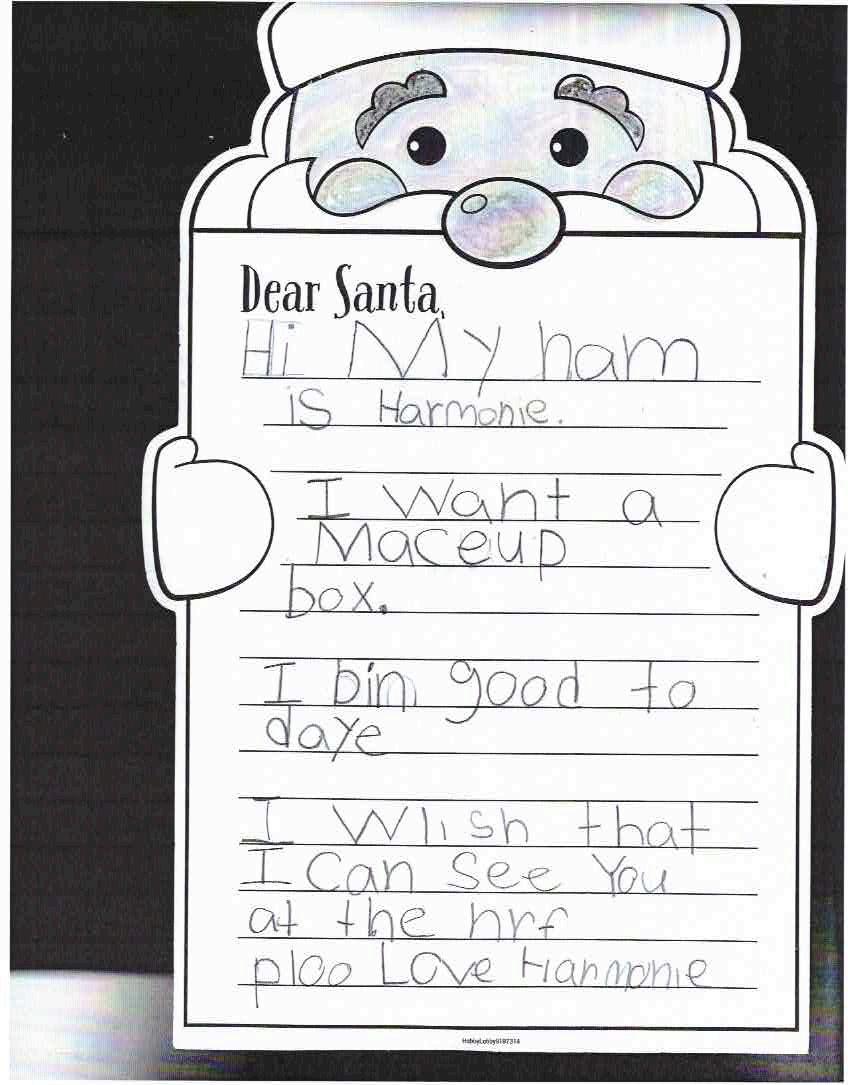 Dear Santa,
Hi My nam
is Harmonie.
I want a
Maceup
box.
I bin good to
daye
I Wish that
I Can See You
at the nrf
ploo Love Harmonie
HobbyLobby5187314